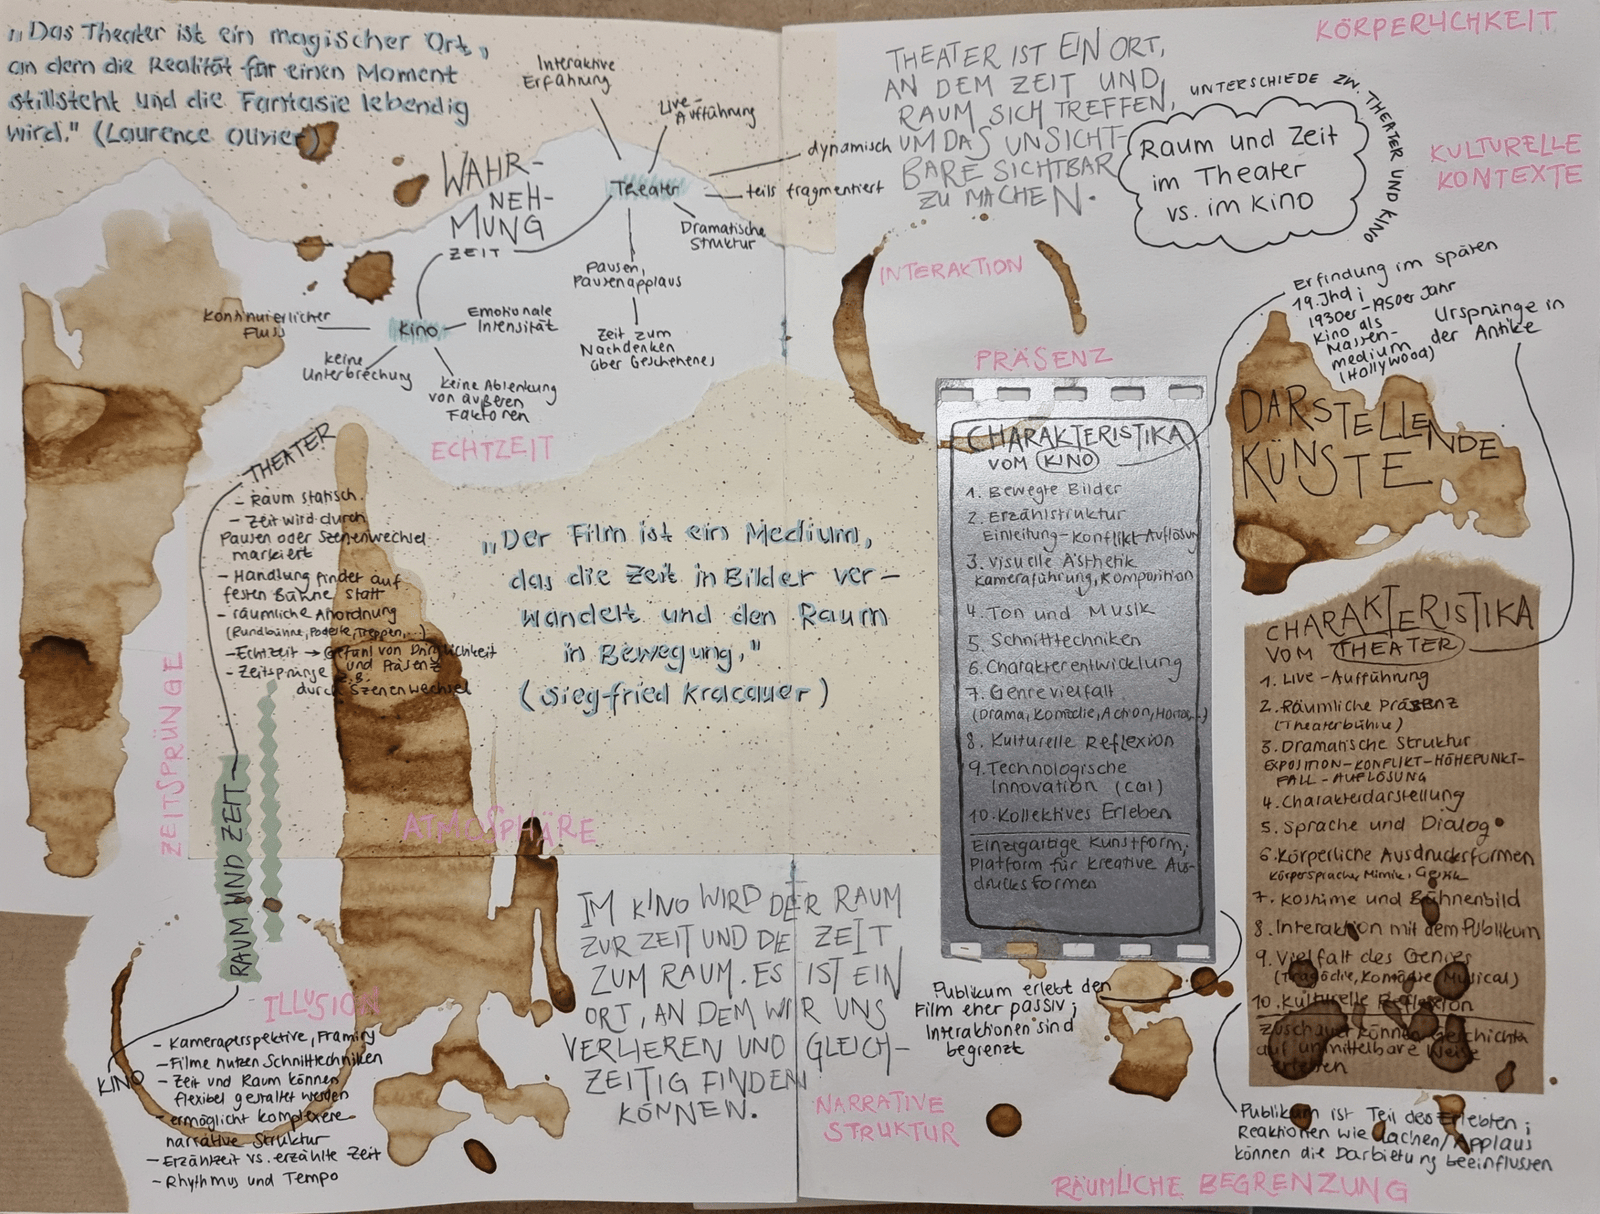 „Das Theater ist ein magischer Ort,
an dem die Realität für einen Moment
stillsteht und die Fantasie lebendig
wird." (Laurence Olivier)
WAHR-
NEH-
MUNG
ZEIT
Theater
Interaktive
Erfahrung
Live-
Aufführung
dynamisch
teils fragmentiert
Dramatische
Struktur
Pausen,
Pausenapplaus
Zeit zum
Nachdenken
über Geschehenes
Kino
Kontinuierlicher
Fluss
Emotionale
Intensität
keine
Unterbrechung
keine Ablenkung
von äußeren
Faktoren
ECHTZEIT
THEATER
- Raum statisch
- Zeit wird durch
Pausen oder Szenenwechsel
markiert
- Handlung findet auf
festen Bühne statt
- räumliche Anordnung
(Rundbühne, Podeste, Treppen,...)
- Echtzeit → Gefühl von Dringlichkeit
und Präsenz
- Zeitsprünge z.B.
durch Szenenwechsel
ZEITSPRÜNGE
RAUM UND ZEIT
„Der Film ist ein Medium,
das die Zeit in Bilder ver-
wandelt und den Raum
in Bewegung."
(Siegfried Kracauer)
ATMOSPHÄRE
ILLUSION
KINO
- Kameraperspektive, Framing
- Filme nutzen Schnitttechniken
- Zeit und Raum können
flexibel gestaltet werden
- ermöglicht komplexere
narrative Struktur
- Erzählzeit vs. erzählte Zeit
- Rhythmus und Tempo
IM KINO WIRD DER RAUM
ZUR ZEIT UND DIE ZEIT
ZUM RAUM. ES IST EIN
ORT, AN DEM WIR UNS
VERLIEREN UND GLEICH-
ZEITIG FINDEN
KÖNNEN.
THEATER IST EIN ORT,
AN DEM ZEIT UND
RAUM SICH TREFFEN,
UM DAS UNSICHT-
BARE SICHTBAR
ZU MACHEN.
KÖRPERLICHKEIT
UNTERSCHIEDE ZW. THEATER UND KINO
Raum und Zeit
im Theater
vs. im Kino
KULTURELLE
KONTEXTE
INTERAKTION
PRÄSENZ
Erfindung im späten
19. Jhd;
1930er-1950er Jahr
Kino als
Massen-
medium
(Hollywood)
Ursprünge in
der Antike
DARSTELLENDE
KÜNSTE
CHARAKTERISTIKA
VOM KINO
1. Bewegte Bilder
2. Erzählstruktur
Einleitung-Konflikt-Auflösung
3. Visuelle Ästhetik
Kameraführung, Komposition
4. Ton und Musik
5. Schnitttechniken
6. Charakterentwicklung
7. Genrevielfalt
(Drama, Komödie, Action, Horror...)
8. Kulturelle Reflexion
9. Technologische
Innovation (CGI)
10. Kollektives Erleben
Einzigartige Kunstform;
Platform für kreative Aus-
drucksformen
Publikum erlebt den
Film eher passiv;
Interaktionen sind
begrenzt
CHARAKTERISTIKA
VOM THEATER
1. Live-Aufführung
2. Räumliche Präsenz
(Theaterbühne)
3. Dramatische Struktur
EXPOSITION-KONFLIKT-HÖHEPUNKT-
FALL-AUFLÖSUNG
4. Charakterdarstellung
5. Sprache und Dialog
6. Körperliche Ausdrucksformen
Körpersprache, Mimik, Gestik
7. Kostüme und Bühnenbild
8. Interaktion mit dem Publikum
9. Vielfalt des Genres
(Tragödie, Komödie, Musical)
10. Kulturelle Reflexion
Zuschauer können Geschichte
auf unmittelbare Weise
erleben
Publikum ist Teil des Erlebten;
Reaktionen wie Lachen/Applaus
können die Darbietung beeinflussen
NARRATIVE
STRUKTUR
RÄUMLICHE BEGRENZUNG